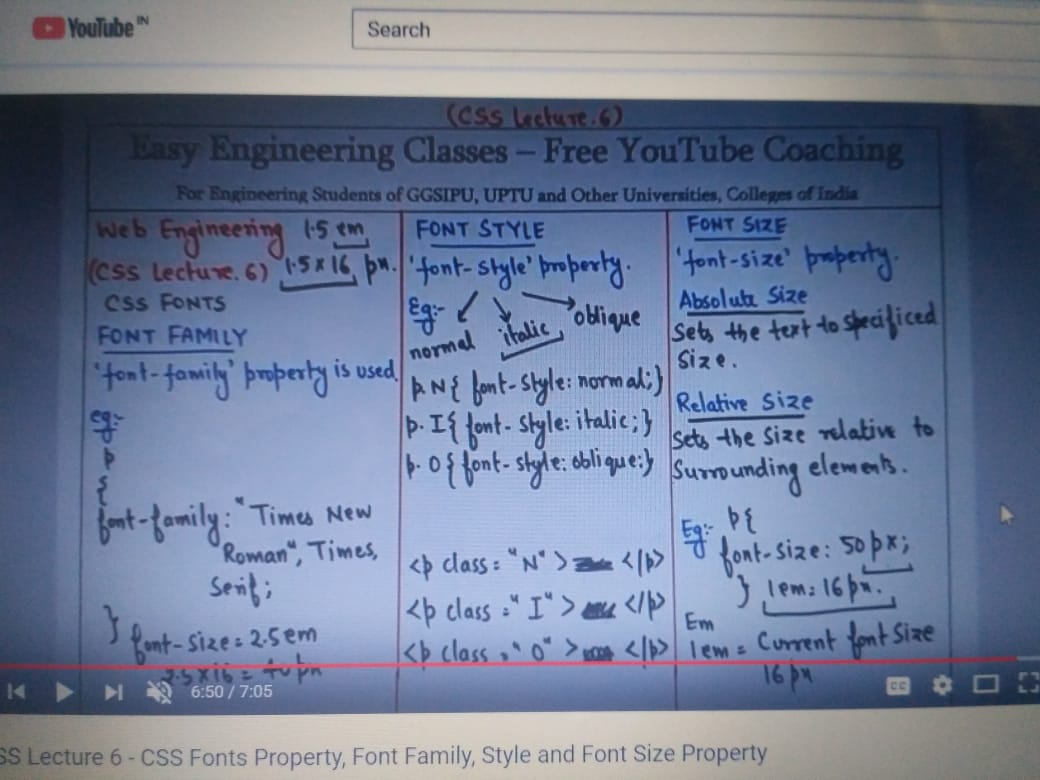 YouTube IN
Search
(CSS Lecture.6)
Easy Engineering Classes – Free YouTube Coaching
For Engineering Students of GGSIPU, UPTU and Other Universities, Colleges of India
Web Engineering 1.5 em
(CSS Lecture.6) 1.5x16 px.
CSS FONTS
FONT FAMILY
'font-family' property is used.
eg:-
p
{
font-family: "Times New
Roman", Times,
Serif;
}
font-size = 2.5em
2.5x16 = 40px
FONT STYLE
'font-style' property.
Eg:-
normal italic, oblique
p.N{ font-style: normal;}
p.I{ font-style: italic;}
p.O{ font-style: oblique;}
<p class="N"> </p>
<p class="I"> </p>
<p class="O"> </p>
FONT SIZE
'font-size' property.
Absolute Size
Sets the text to specificed
Size.
Relative Size
Sets the size relative to
Surrounding elements.
Eg:- p{
font-size: 50px;
} 1em = 16px.
Em
1em = Current font size
16px
6:50 / 7:05
CC
SS Lecture 6 - CSS Fonts Property, Font Family, Style and Font Size Property